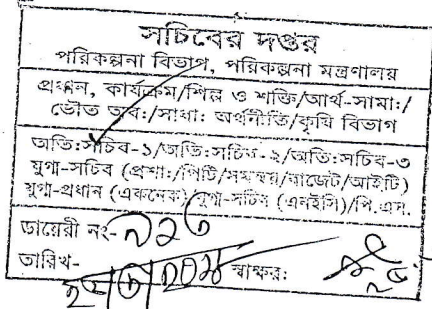 সচিবের দপ্তর
পরিকল্পনা বিভাগ, পরিকল্পনা মন্ত্রণালয়
প্রধান, কার্যক্রম/শিল্প ও শক্তি/আর্থ-সামা:/
ভৌত অব:/সাধা: অর্থনীতি/কৃষি বিভাগ
অতি:সচিব-১/অতি:সচিব-২/অতি:সচিব-৩
যুগ্ম-সচিব (প্রশা:/পিটি/সমন্বয়/বাজেট/আইটি)
যুগ্ম-প্রধান (একনেক)/যুগ্ম-সচিব (এনইসি)/পি.এস.
ডায়েরী নং-
তারিখ- স্বাক্ষর: